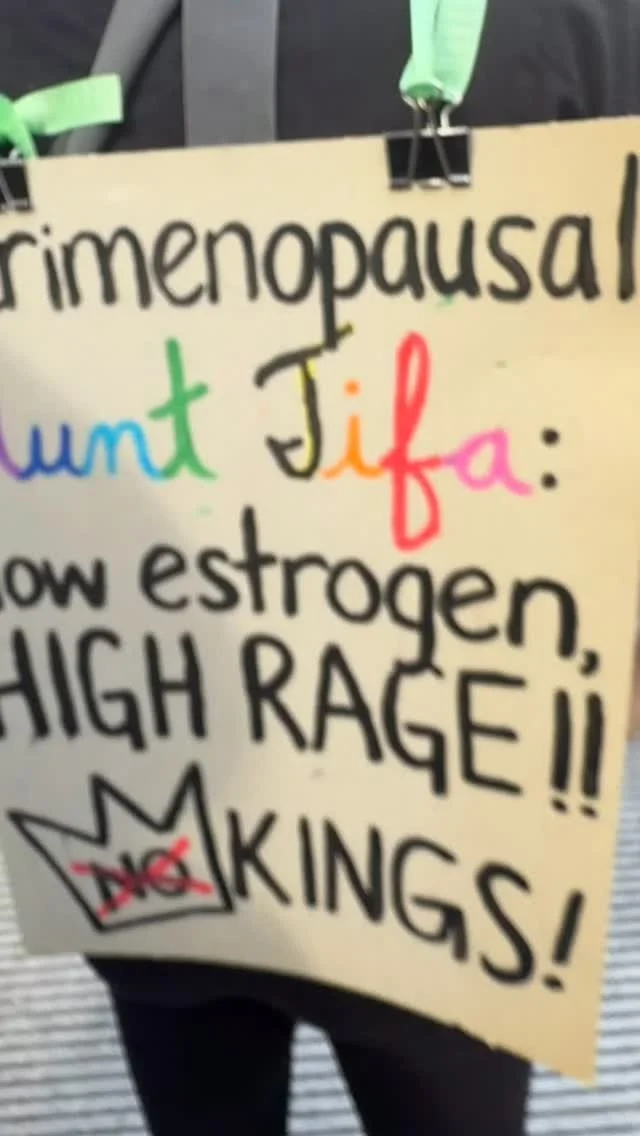 rimenopausal
unt Tifa:
low estrogen,
HIGH RAGE!!
NO KINGS!